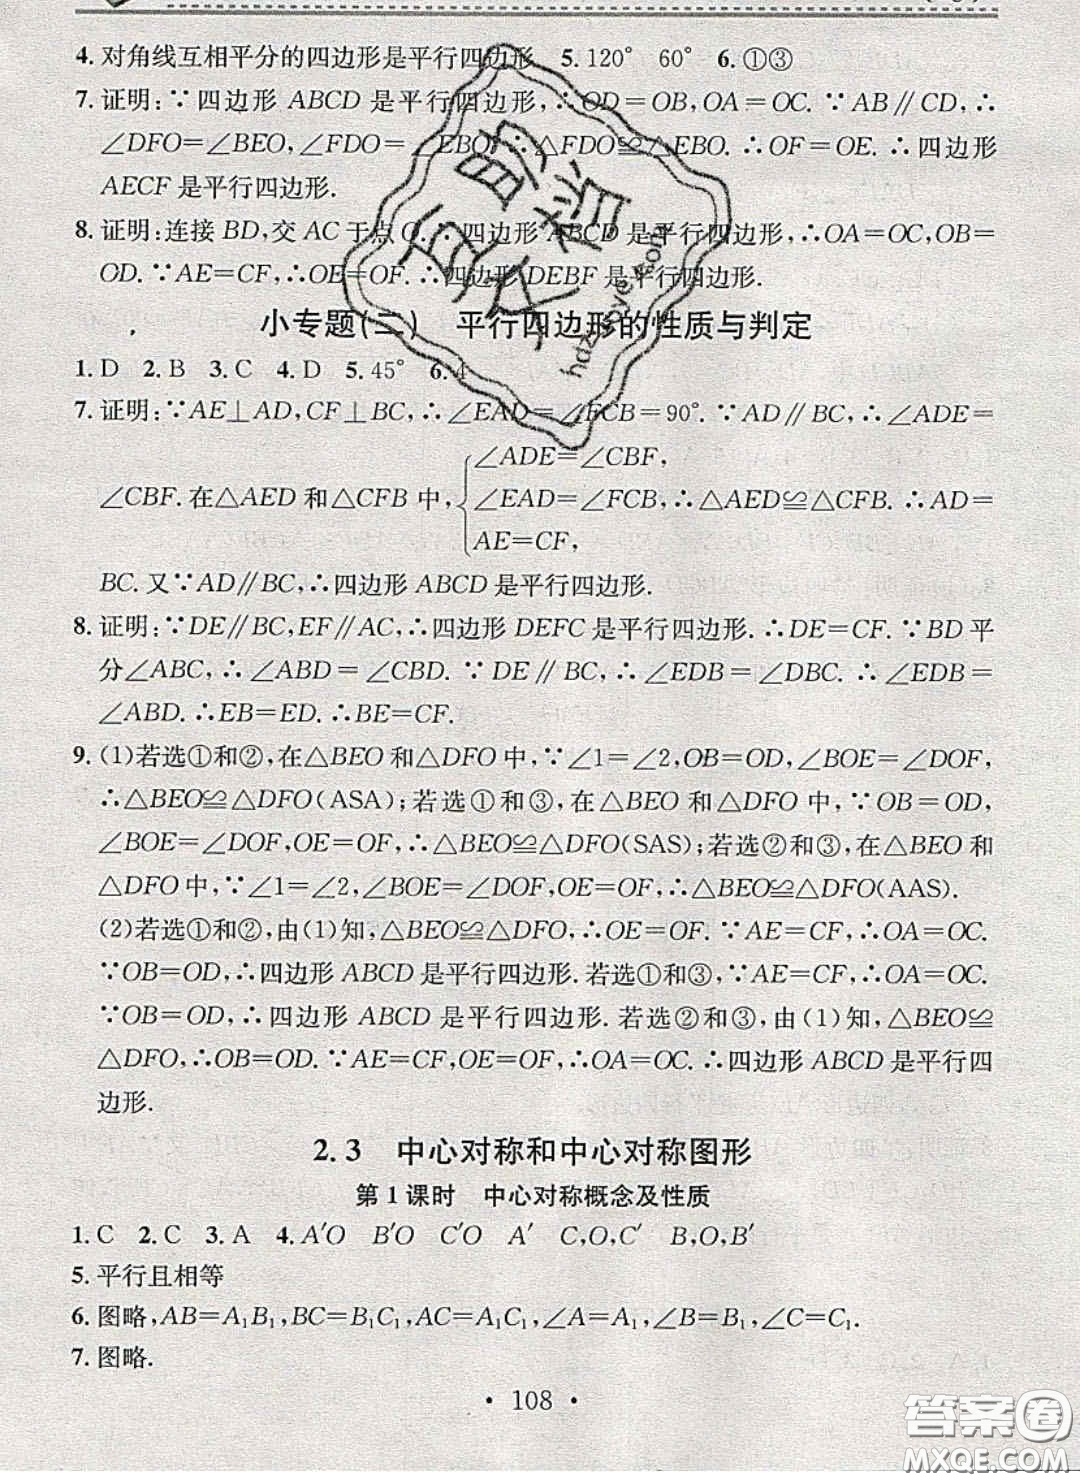 4. 对角线互相平分的四边形是平行四边形 5. 120° 60° 6. ①③
7. 证明:∵四边形 ABCD 是平行四边形,∴OD=OB,OA=OC. ∵AB∥CD,∴
∠DFO=∠BEO,∠FDO=∠EBO. ∴△FDO≌△EBO. ∴OF=OE. ∴四边形
AECF 是平行四边形.
8. 证明:连接 BD,交 AC 于点 O. ∵四边形 ABCD 是平行四边形,∴OA=OC,OB=
OD. ∵AE=CF,∴OE=OF. ∴四边形 DEBF 是平行四边形.
小专题(二) 平行四边形的性质与判定
1. D 2. B 3. C 4. D 5. 45° 6. 4
7. 证明:∵AE⊥AD,CF⊥BC,∴∠EAD=∠FCB=90°. ∵AD∥BC,∴∠ADE=
∠CBF. 在△AED 和△CFB 中,{∠ADE=∠CBF,
∠EAD=∠FCB,∴△AED≌△CFB. ∴AD=
AE=CF,
BC. 又∵AD∥BC,∴四边形 ABCD 是平行四边形.
8. 证明:∵DE∥BC,EF∥AC,∴四边形 DEFC 是平行四边形. ∴DE=CF. ∵BD 平
分∠ABC,∴∠ABD=∠CBD. ∵DE∥BC,∴∠EDB=∠DBC. ∴∠EDB=
∠ABD. ∴EB=ED. ∴BE=CF.
9. (1)若选①和②,在△BEO 和△DFO 中,∵∠1=∠2,OB=OD,∠BOE=∠DOF,
∴△BEO≌△DFO(ASA);若选①和③,在△BEO 和△DFO 中,∵OB=OD,
∠BOE=∠DOF,OE=OF,∴△BEO≌△DFO(SAS);若选②和③,在△BEO 和
△DFO 中,∵∠1=∠2,∠BOE=∠DOF,OE=OF,∴△BEO≌△DFO(AAS).
(2)若选①和②,由(1)知,△BEO≌△DFO,∴OE=OF. ∵AE=CF,∴OA=OC.
∵OB=OD,∴四边形 ABCD 是平行四边形. 若选①和③,∵AE=CF,∴OA=OC.
∵OB=OD,∴四边形 ABCD 是平行四边形. 若选②和③,由(1)知,△BEO≌
△DFO,∴OB=OD. ∵AE=CF,OE=OF,∴OA=OC. ∴四边形 ABCD 是平行四
边形.
2.3 中心对称和中心对称图形
第1课时 中心对称概念及性质
1. C 2. C 3. A 4. A′O B′O C′O A′ C,O,C′ B,O,B′
5. 平行且相等
6. 图略,AB=A₁B₁,BC=B₁C₁,AC=A₁C₁,∠A=A₁,∠B=B₁,∠C=C₁.
7. 图略.
· 108 ·
答案圈
MXQE.COM